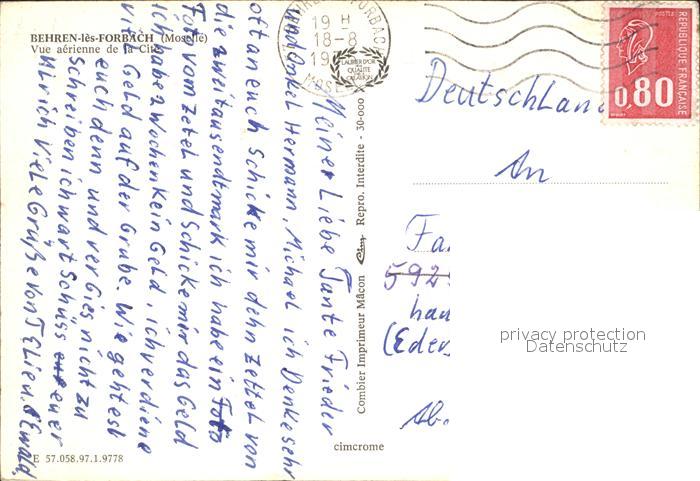 BEHREN-lès-FORBACH (Moselle)
Vue aérienne de la Cité
Meiner Liebe Tante Frieder
und onkel Hermann, Michael ich Denke sehr
oft an euch Schicke mir dehn Zettel von
die zweitausendmark ich habe ein Foto
Foto vom Zetel und Schicke mir das Geld
ich habe 2 Wochen kein Geld, ich verdiene
viel Geld auf der Grube. Wie geht es
euch denn und vergies nicht zu
Schreiben ich wart Schüss euer
Ulrich Viele Grüße von
E 57.058.97.1.9778
Combier Imprimeur Mâcon Cim Repro. Interdite - 30-000
cimcrome
19 H
18-8
19
LAURIER D'OR
DE LA
QUALITE
CREATION
POSTES
REPUBLIQUE FRANÇAISE
0,80
Deutschland
An
Fa.
592
hau
(Eder
Ab.
privacy protection
Datenschutz